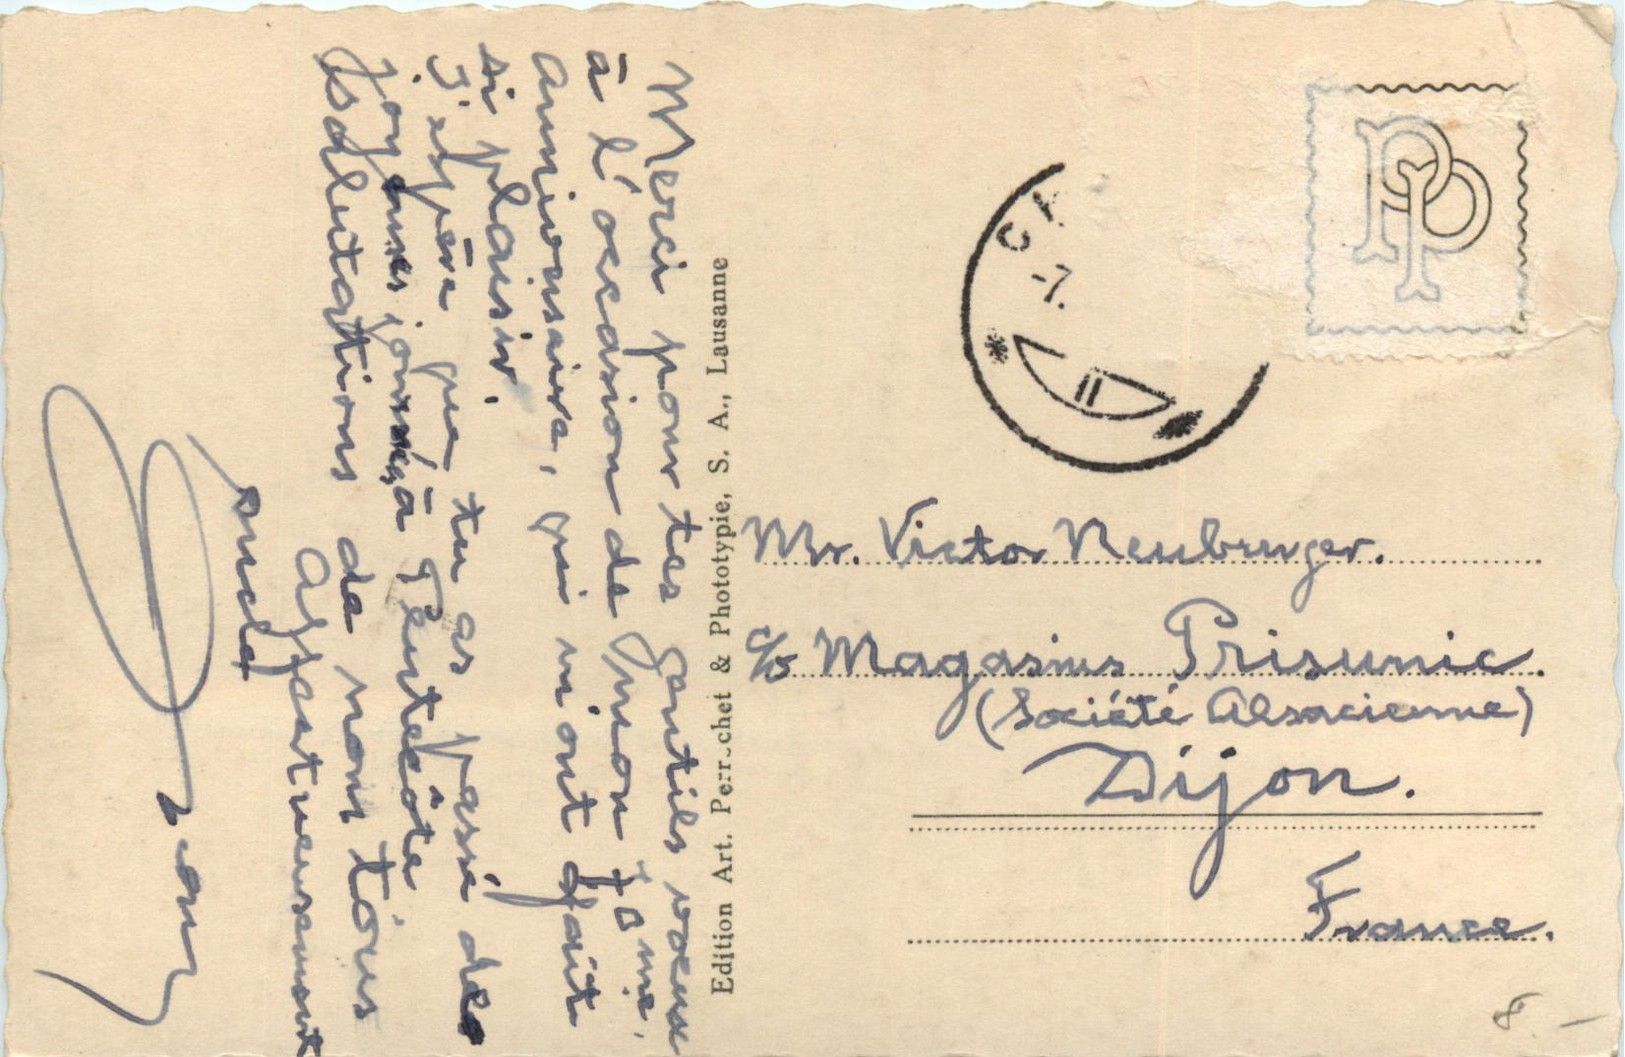 Merci pour tes gentils voeux
à l'occasion de mon
anniversaire, qui m'ont fait
si plaisir.
J'espère que tu as passé des
journées à Pentecôte
salutations de nous tous
Affectueusement
oncle
Edition Art. Perrochet & Phototypie, S. A., Lausanne
PP
-7.
II
Mr. Victor Neubruger.
c/o Magasins Prisunic.
(Société Alsacienne)
Dijon.
France.
8.-